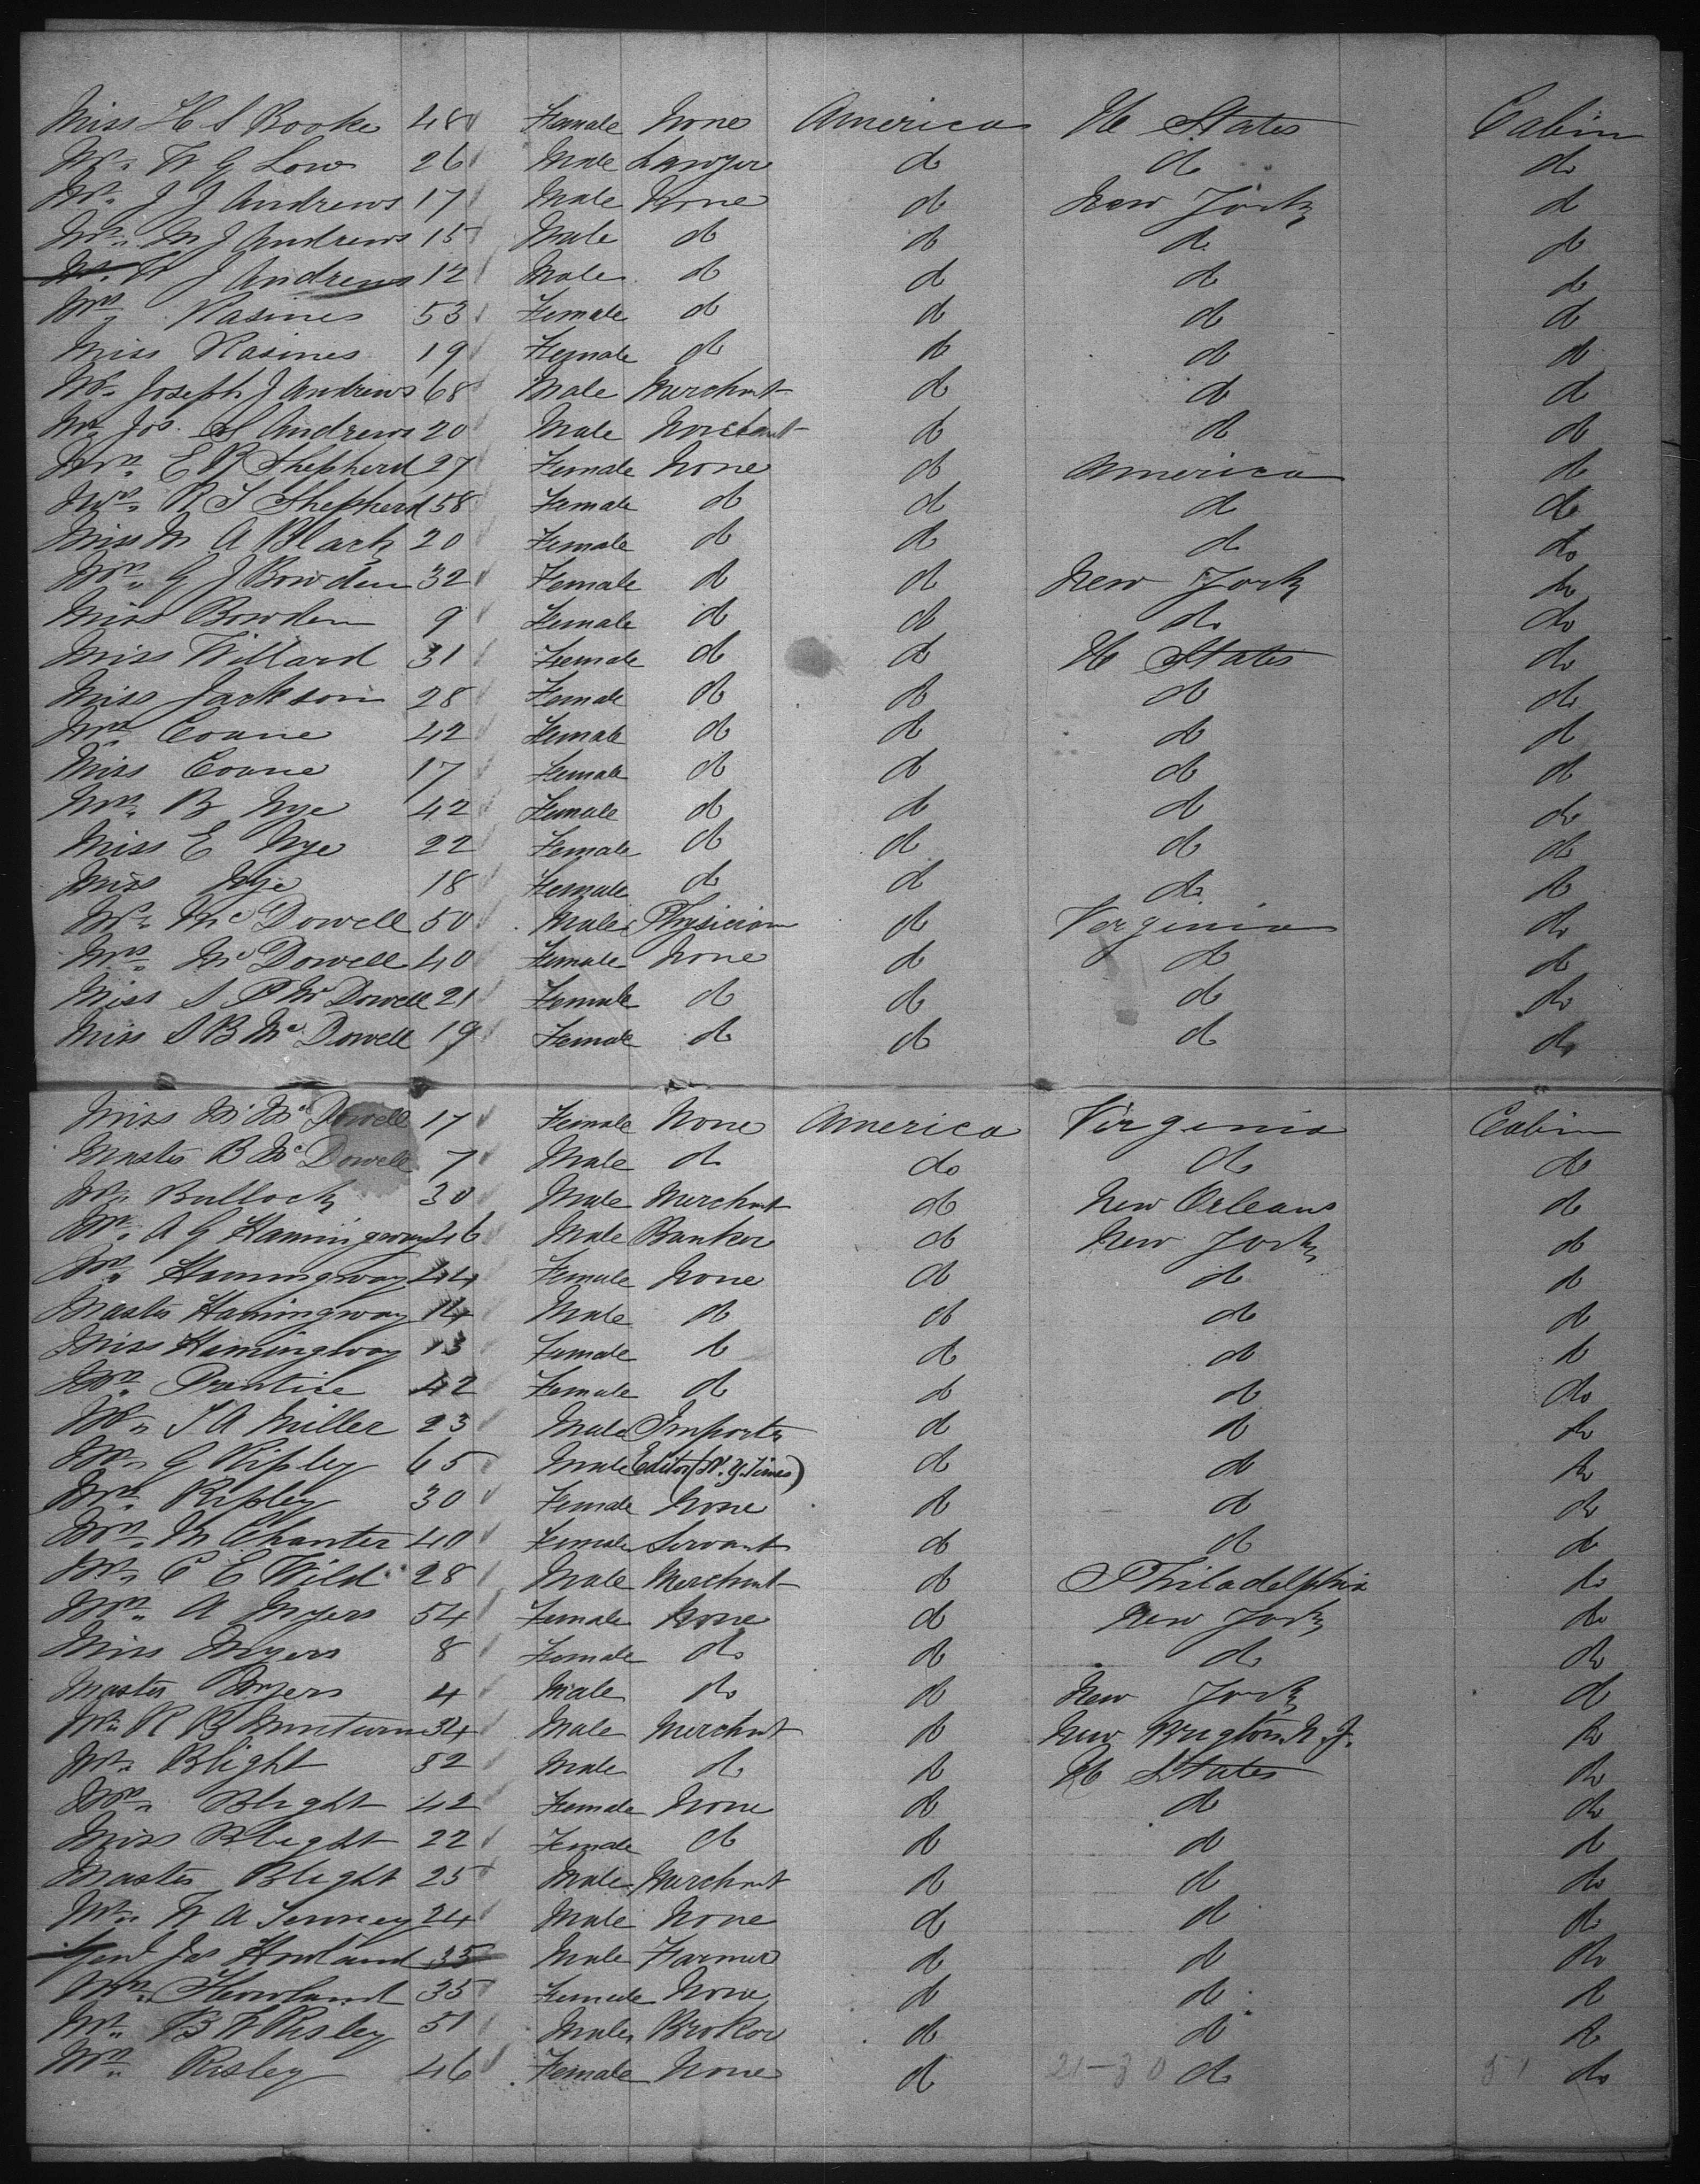 Miss H S Rooke 48 Female None America U States Cabin
Mr. W G Low 26 Male Lawyer do do do
Mr. J J Andrews 17 Male None do New York do
Mr. M J Andrews 15 Male do do do do
Mr. W J Andrews 12 Male do do do do
Mrs Rasines 53 Female do do do do
Miss Rasines 19 Female do do do do
Mr. Joseph J Andrews 68 Male Merchant do do do
Mr Jos. S Andrews 20 Male Merchant do do do
Mrs. E B Shepherd 27 Female None do America do
Mrs. R S Shepherd 58 Female do do do do
Miss M A Black 20 Female do do do do
Mrs. G J Bowden 32 Female do do New York do
Miss Bowden 9 Female do do do do
Miss Willard 31 Female do do U States do
Miss Jackson 28 Female do do do do
Mrs. Coane 42 Female do do do do
Miss Coane 17 Female do do do do
Mrs. B Nye 42 Female do do do do
Miss E Nye 22 Female do do do do
Miss Nye 18 Female do do do do
Mr. McDowell 50 Male Physician do Virginia do
Mrs. McDowell 40 Female None do do do
Miss S P McDowell 21 Female do do do do
Miss S B McDowell 19 Female do do do do
Miss M. McDowell 17 Female None America Virginia Cabin
Master B McDowell 7 Male do do do do
Mr. Bullock 30 Male Merchant do New Orleans do
Mr. A G Hamingway 46 Male Banker do New York do
Mrs. Hamingway 44 Female None do do do
Master Hamingway 14 Male do do do do
Miss Hemingway 13 Female do do do do
Mrs. Prentice 42 Female do do do do
Mr. S A Miller 23 Male Importer do do do
Mr. G Ripley 65 Male Editor (N.Y. Times) do do do
Mrs. Ripley 30 Female None do do do
Mrs. M Chanter 40 Female Servant do do do
Mr. C E Wild 28 Male Merchant do Philadelphia do
Mrs. A Myers 54 Female None do New York do
Miss Myers 8 Female do do do do
Master Myers 4 Male do do New York do
Mr. R B Minturn 34 Male Merchant do New Brigton N.J. do
Mr. Blight 52 Male do do U States do
Mrs. Blight 42 Female None do do do
Miss Blight 22 Female do do do do
Master Blight 25 Male Merchant do do do
Mr. W A Tenney 24 Male None do do do
Genl Jas Howland 35 Male Farmer do do do
Mrs. Howland 35 Female None do do do
Mr. B W Risley 51 Male Broker do do do
Mrs. Risley 46 Female None do 21-30 do 51 do